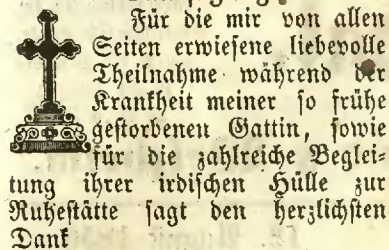 Für die mir von allen
Seiten erwiesene liebevolle
Theilnahme während der
Krankheit meiner so frühe
gestorbenen Gattin, sowie
für die zahlreiche Beglei-
tung ihrer irdischen Hülle zur
Ruhestätte sagt den herzlichsten
Dank